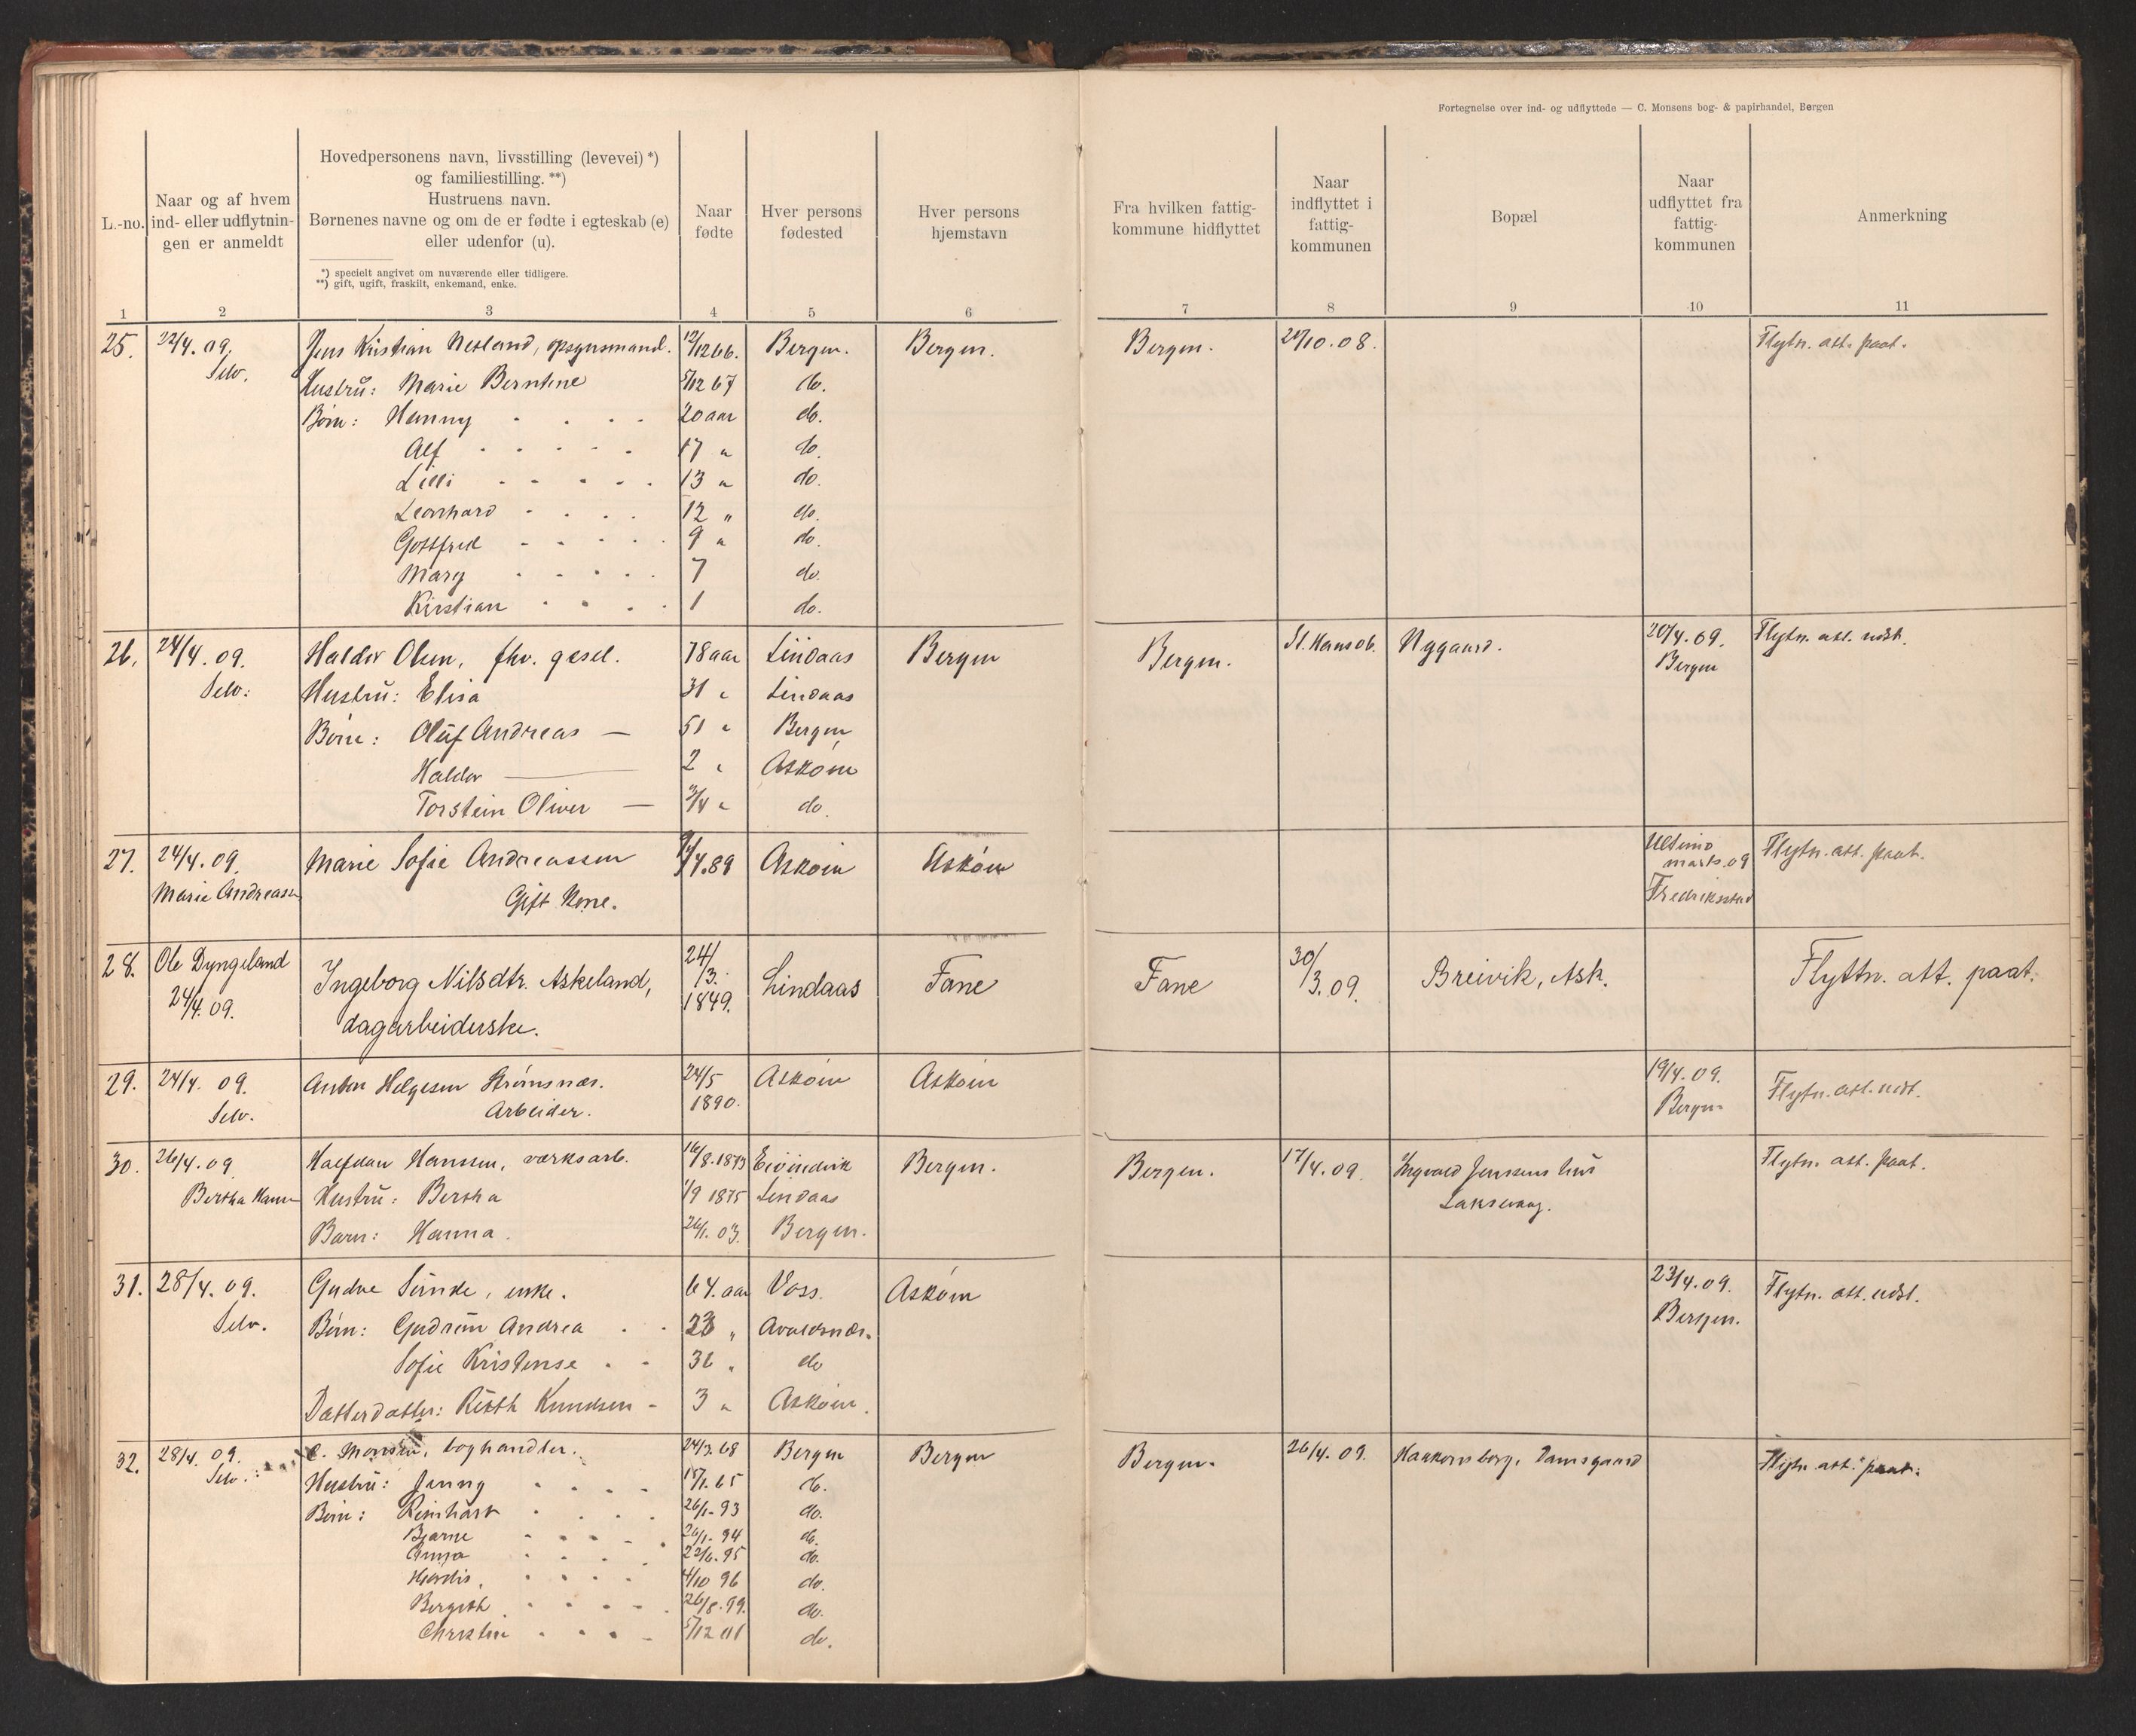 Fortegnelse over ind- og udflyttede — C. Monsens bog- & papirhandel, Bergen
L.-no.
Naar og af hvem
ind- eller udflytnin-
gen er anmeldt
Hovedpersonens navn, livsstilling (levevei) *)
og familiestilling. **)
Hustruens navn.
Børnenes navne og om de er fødte i egteskab (e)
eller udenfor (u).
*) specielt angivet om nuværende eller tidligere.
**) gift, ugift, fraskilt, enkemand, enke.
Naar
fødte
Hver persons
fødested
Hver persons
hjemstavn
Fra hvilken fattig-
kommune hidflyttet
Naar
indflyttet i
fattig-
kommunen
Bopæl
Naar
udflyttet fra
fattig-
kommunen
Anmerkning
1 2 3 4 5 6 7 8 9 10 11
25. 22/4. 09. Jens Kristian Nesland, opsynsmand. 12/12 66. Bergen. Bergen. Bergen. /10. 08. Flytn. att. paat.
Selv. Hustru: Marie Berntine 5/12 67 do.
Børn: Hanny 20 aar do.
Alf 17 " do.
Lilli 13 " do.
Leonhard 12 " do.
Gottfred 9 " do.
Mary 7 do.
Kirstian 1 do.
26. 24/4. 09. Haldor Olsen, fhv. gesel. 78 aar Lindaas Bergen Bergen. St. Hans 06. Nygaard. 20/4. 09. Flytn. att. udst.
Selv. Hustru: Elisa 31 " Lindaas Bergen
Børn: Oluf Andreas — 51 " Bergen
Haldor — 2 " Askøin
Torstein Oliver — 3/4 " do.
27. 24/4. 09. Marie Sofie Andreassen /4. 89 Askøin Askøin Ultimo marts. 09 Flytn. att. paat.
Marie Andreassen Gift Kone. Fredriksstad
28. Ole Dyngeland 24/4. 09. Ingeborg Nilsdtr. Askeland, 24/3. 1849. Lindaas Fane Fane 30/3. 09. Breivik, Ask. Flyttn. att. paat.
dagarbeiderske.
29. 24/4. 09. Anton Helgesen Strømsnæs. 24/5 1890. Askøin Askøin 19/4. 09. Flytn. att. udst.
Selv. Arbeider. Bergen
30. 26/4. 09. Halfdan Hanssen, værksarb. 16/8. 1873 Eivindvik Bergen. Bergen. 17/4. 09. Ingvald Jensens hus Flytn. att. paat.
Bertha Hansen Hustru: Bertha 1/9 1875 Lindaas Laksevaag.
Barn: Hanna. 26/1. 03. Bergen.
31. 28/4. 09. Gudve Sunde, enke. 64. aar Voss. Askøin 23/4. 09. Flytn. att. udst.
Selv. Børn: Gudrun Andrea 23 " Avaldsnæs. Bergen.
Sofie Kristense 36 " do
Datterdatter: Ruth Knudsen - 3 " Askøin.
32. 28/4. 09. C. Monsen, boghandler. 24/3. 68 Bergen Bergen Bergen. 26/4. 09. Haakonsborg. Damsgaard Flytn. att. paat.
Selv. Hustru: Jenny 18/1. 65 do.
Børn: Reinhart 26/1- 93 do.
Bjarne 26/1- 94 do.
Anna 22/6. 95 do.
Hjørdis. 4/10 96 do.
Bergith 26/8. 99. do.
Christin 5/12 01 do.